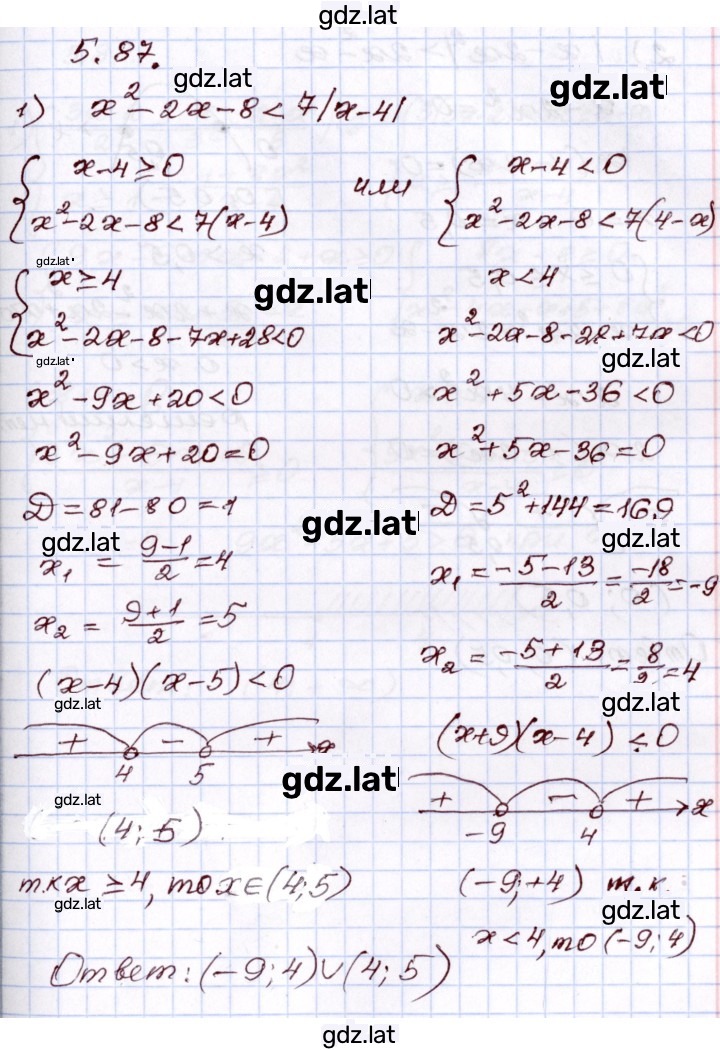 gdz.lat
5.87.
gdz.lat
gdz.lat
1) x² - 2x - 8 < 7|x-4|
{ x-4 ≥ 0
x² - 2x - 8 < 7(x-4)
или
{ x-4 < 0
x² - 2x - 8 < 7(4-x)
gdz.lat
{ x ≥ 4
x² - 2x - 8 - 7x + 28 < 0
gdz.lat
x < 4
x² - 2x - 8 - 28 + 7x < 0
gdz.lat
gdz.lat
x² - 9x + 20 < 0
x² + 5x - 36 < 0
x² - 9x + 20 = 0
x² + 5x - 36 = 0
D = 81 - 80 = 1
gdz.lat
D = 5² + 144 = 169
gdz.lat
gdz.lat
x₁ = (9-1)/2 = 4
x₁ = (-5-13)/2 = -18/2 = -9
x₂ = (9+1)/2 = 5
x₂ = (-5+13)/2 = 8/2 = 4
(x-4)(x-5) < 0
gdz.lat
gdz.lat
(x+9)(x-4) < 0
+ - + x
4 5
gdz.lat
+ - + x
-9 4
gdz.lat
(4; 5)
т.к x ≥ 4, то x ∈ (4; 5)
(-9; +4) т.к.
gdz.lat
gdz.lat
x < 4, то (-9; 4)
Ответ: (-9; 4) ∪ (4; 5)
gdz.lat